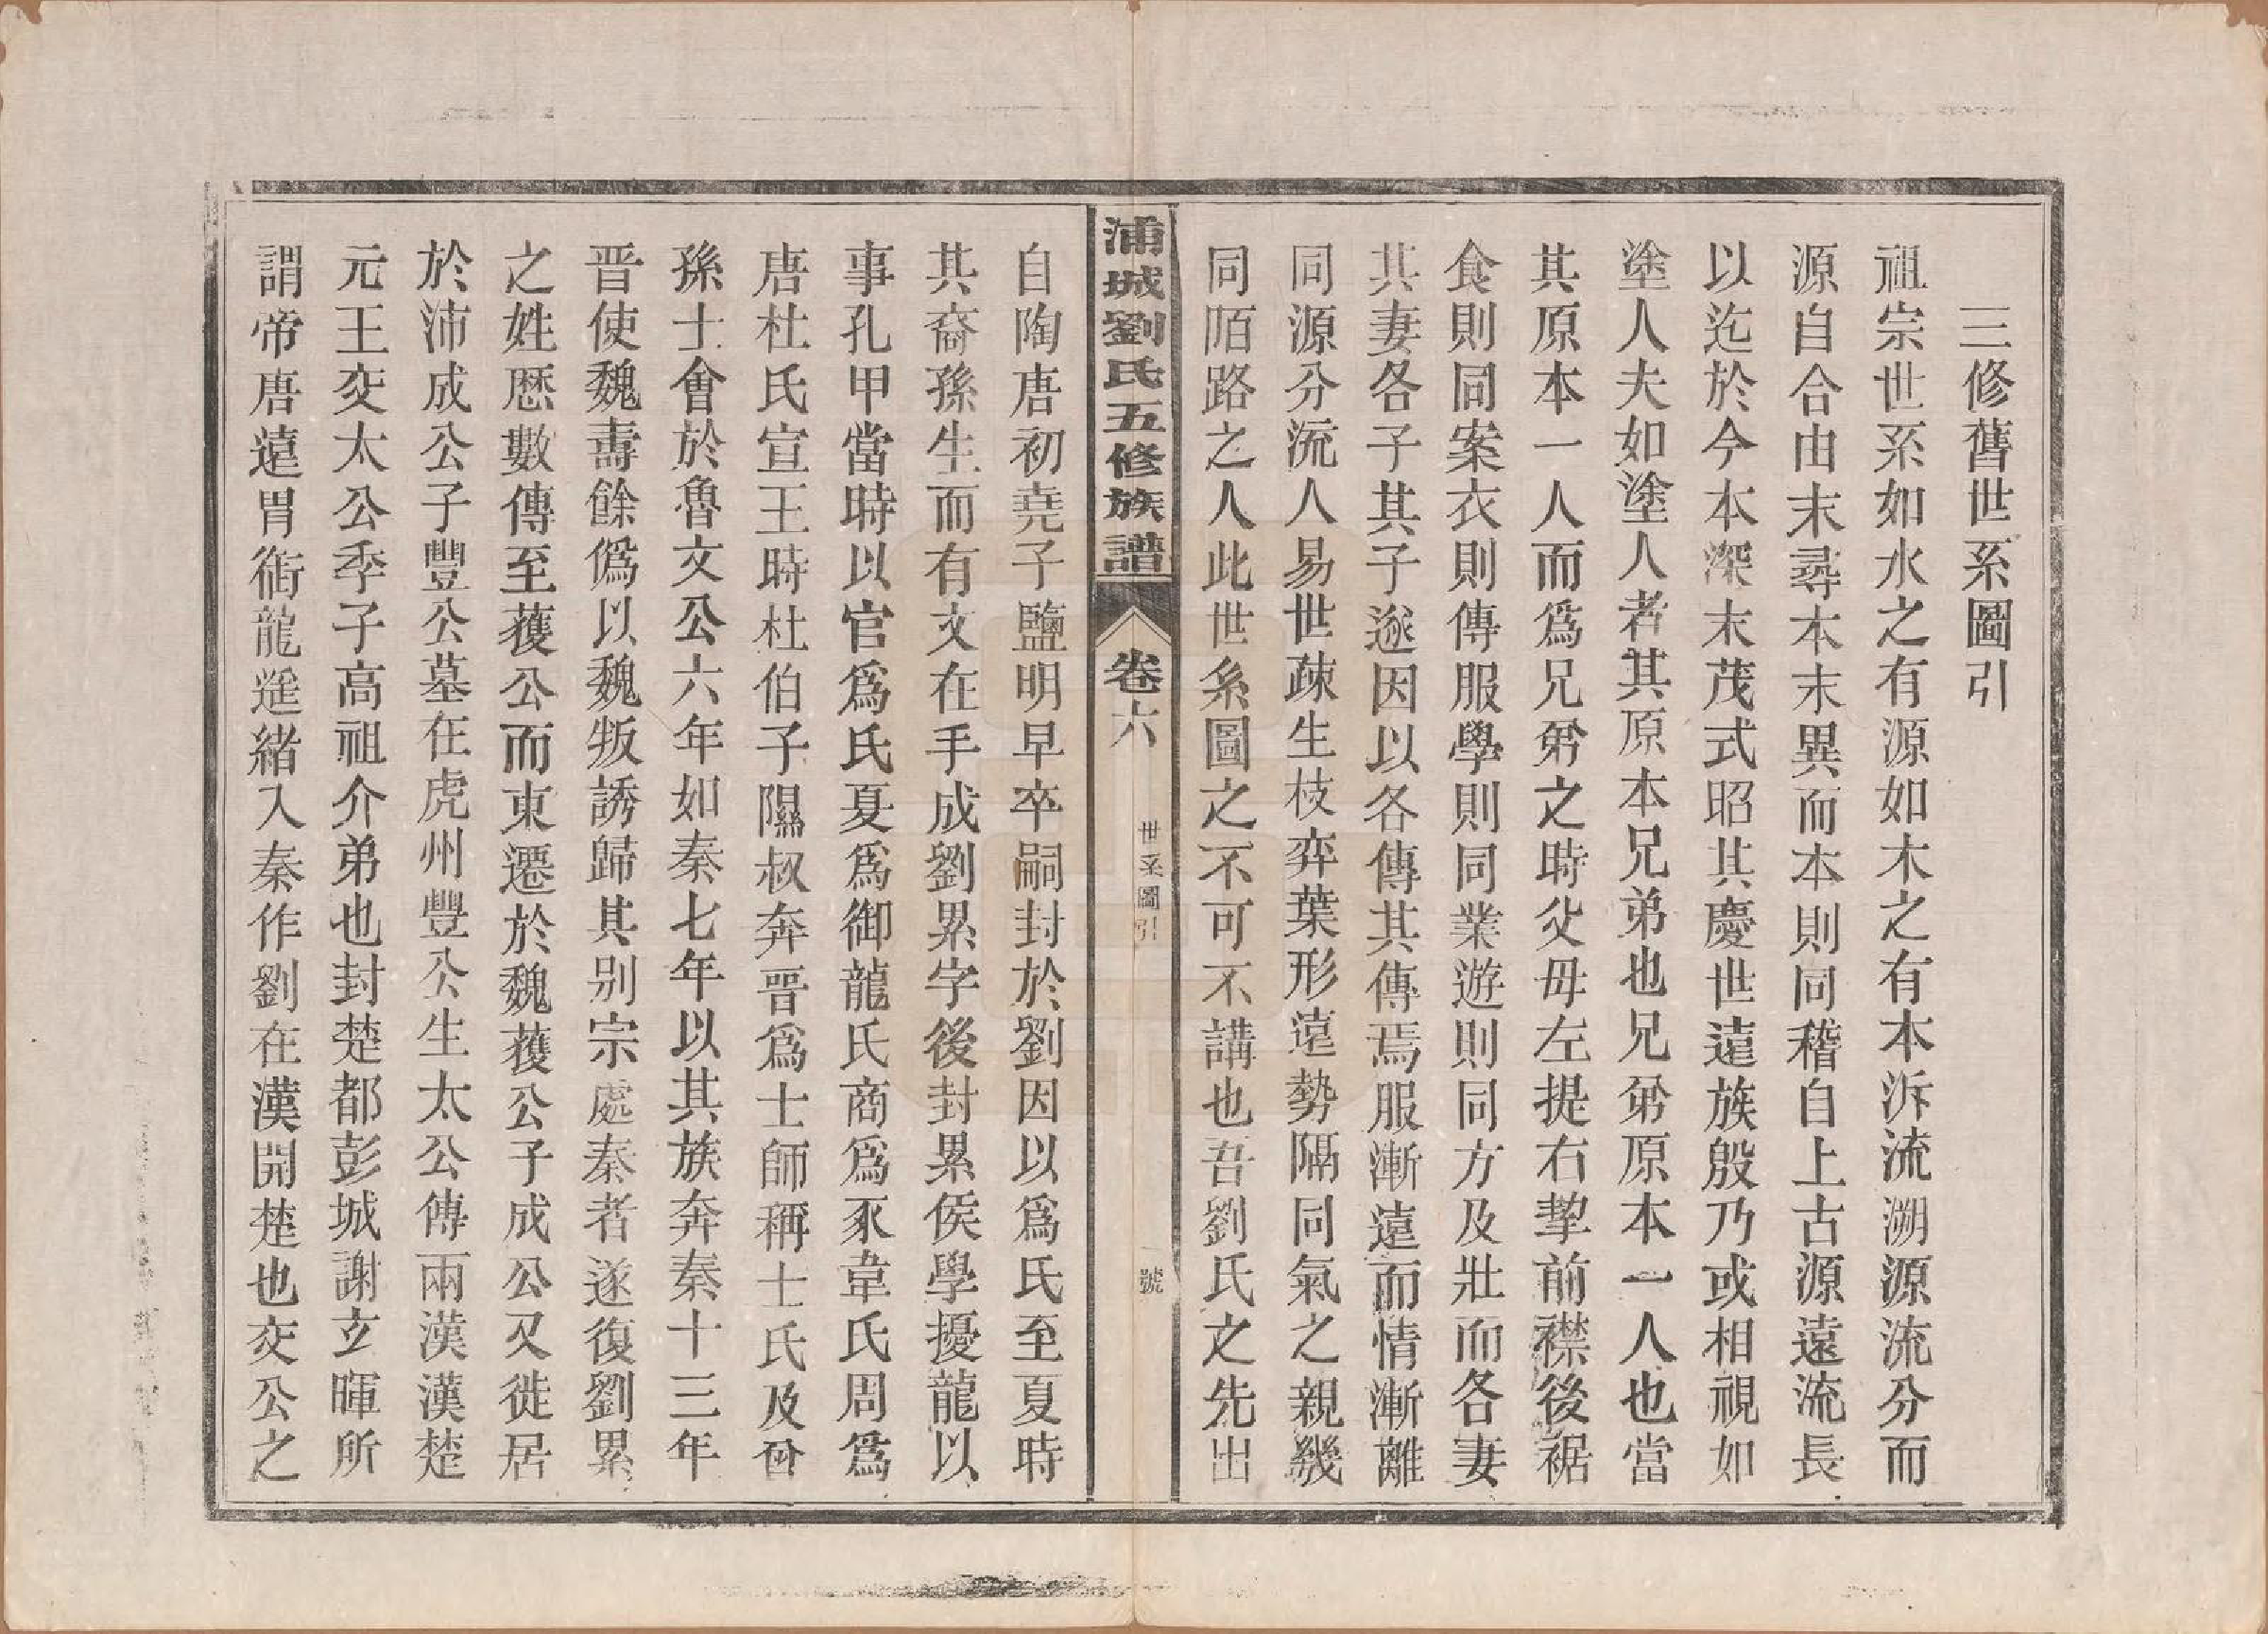 三修舊世系圖引
祖宗世系如水之有源如木之有本泝流溯源流分而
源自合由末尋本末異而本則同稽自上古源遠流長
以迄於今本深末茂式昭其慶世遠族殷乃或相視如
塗人夫如塗人者其原本兄弟也兄弟原本一人也當
其原本一人而爲兄弟之時父母左提右挈前襟後裾
食則同案衣則傳服學則同業遊則同方及壯而各妻
其妻各子其子遂因以各傳其傳焉服漸遠而情漸離
同源分流人易世疎生枝弈葉形遠勢隔同氣之親幾
同陌路之人此世系圖之不可不講也吾劉氏之先出
浦城劉氏五修族譜
卷六
世系圖引
一號
自陶唐初堯子鹽明早卒嗣封於劉因以爲氏至夏時
其裔孫生而有文在手成劉累字後封累侯學擾龍以
事孔甲當時以官爲氏夏爲御龍氏商爲豕韋氏周爲
唐杜氏宣王時杜伯子隰叔奔晋爲士師稱士氏及
孫士會於魯文公六年如秦七年以其族奔秦十三年
晋使魏壽餘僞以魏叛誘歸其别宗處秦者遂復劉累
之姓厯數傳至蒦公而東遷於魏蒦公子成公又徙居
於沛成公子豐公墓在虎州豐公生太公傳兩漢漢楚
元王交太公季子高祖介弟也封楚都彭城謝玄暉所
謂帝唐遠胄御龍遥緒入秦作劉在漢開楚也交公之